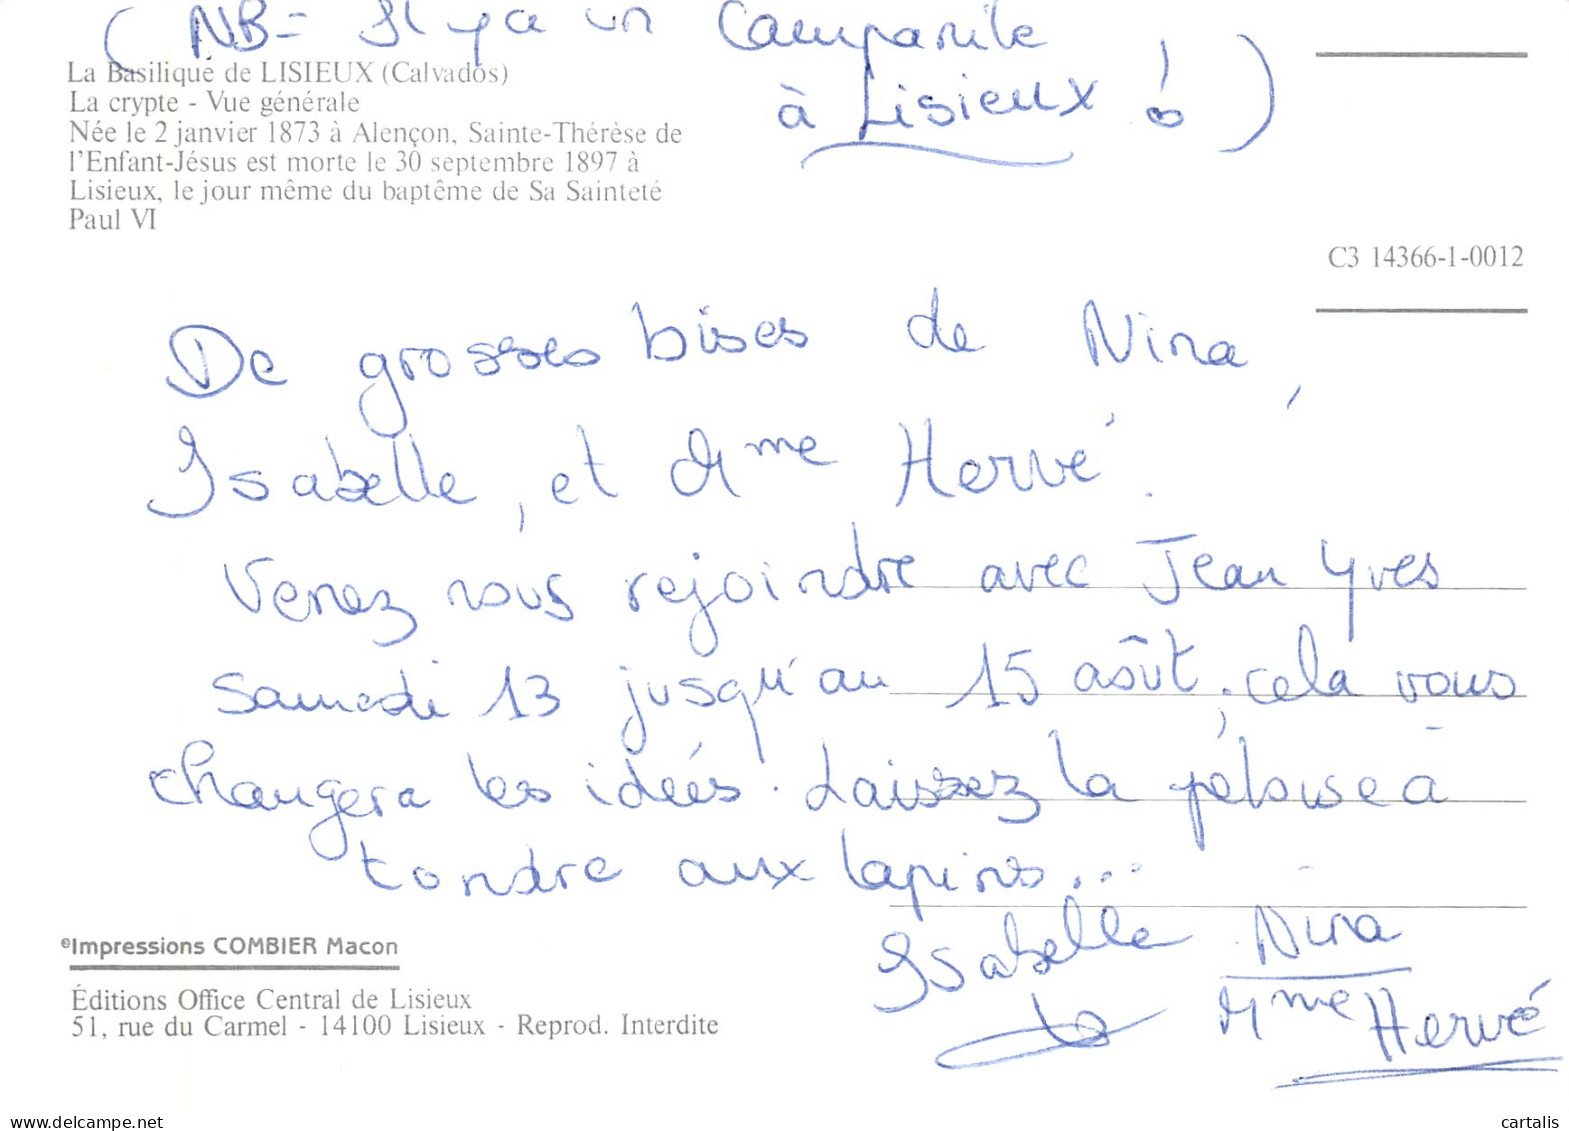 ( NB = Il y a un Campanile
à Lisieux ! )
La Basilique de LISIEUX (Calvados)
La crypte - Vue générale
Née le 2 janvier 1873 à Alençon, Sainte-Thérèse de
l'Enfant-Jésus est morte le 30 septembre 1897 à
Lisieux, le jour même du baptême de Sa Sainteté
Paul VI
C3 14366-1-0012
De grosses bises de Nina,
Isabelle, et Mme Hervé.
Venez nous rejoindre avec Jean Yves
Samedi 13 jusqu'au 15 août, cela vous
changera les idées. Laissez la pelouse à
tondre aux lapins...
Isabelle Nina
Mme Hervé
©Impressions COMBIER Macon
Éditions Office Central de Lisieux
51, rue du Carmel - 14100 Lisieux - Reprod. Interdite
www.delcampe.net
cartalis